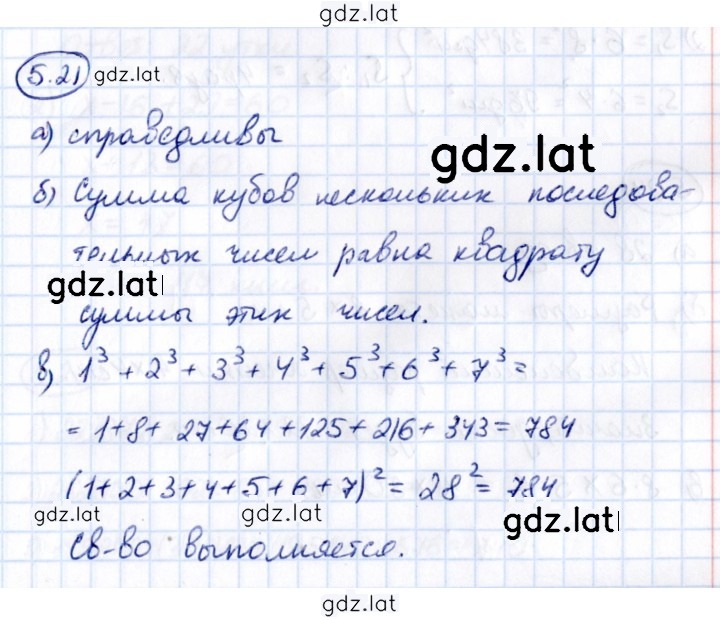 gdz.lat
5.21 gdz.lat
а) справедливы
gdz.lat
б) Сумма кубов нескольких последова-
тельных чисел равна квадрату
gdz.lat
суммы этих чисел.
в) 1³ + 2³ + 3³ + 4³ + 5³ + 6³ + 7³ =
= 1+8+ 27+64+125+216+343 = 784
(1+2+3+4+5+6+7)² = 28² = 784
gdz.lat gdz.lat gdz.lat
Св-во выполняется.
gdz.lat